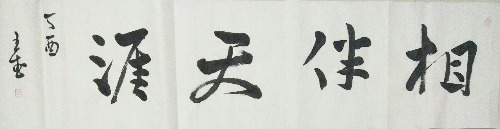 相伴天涯
丁酉